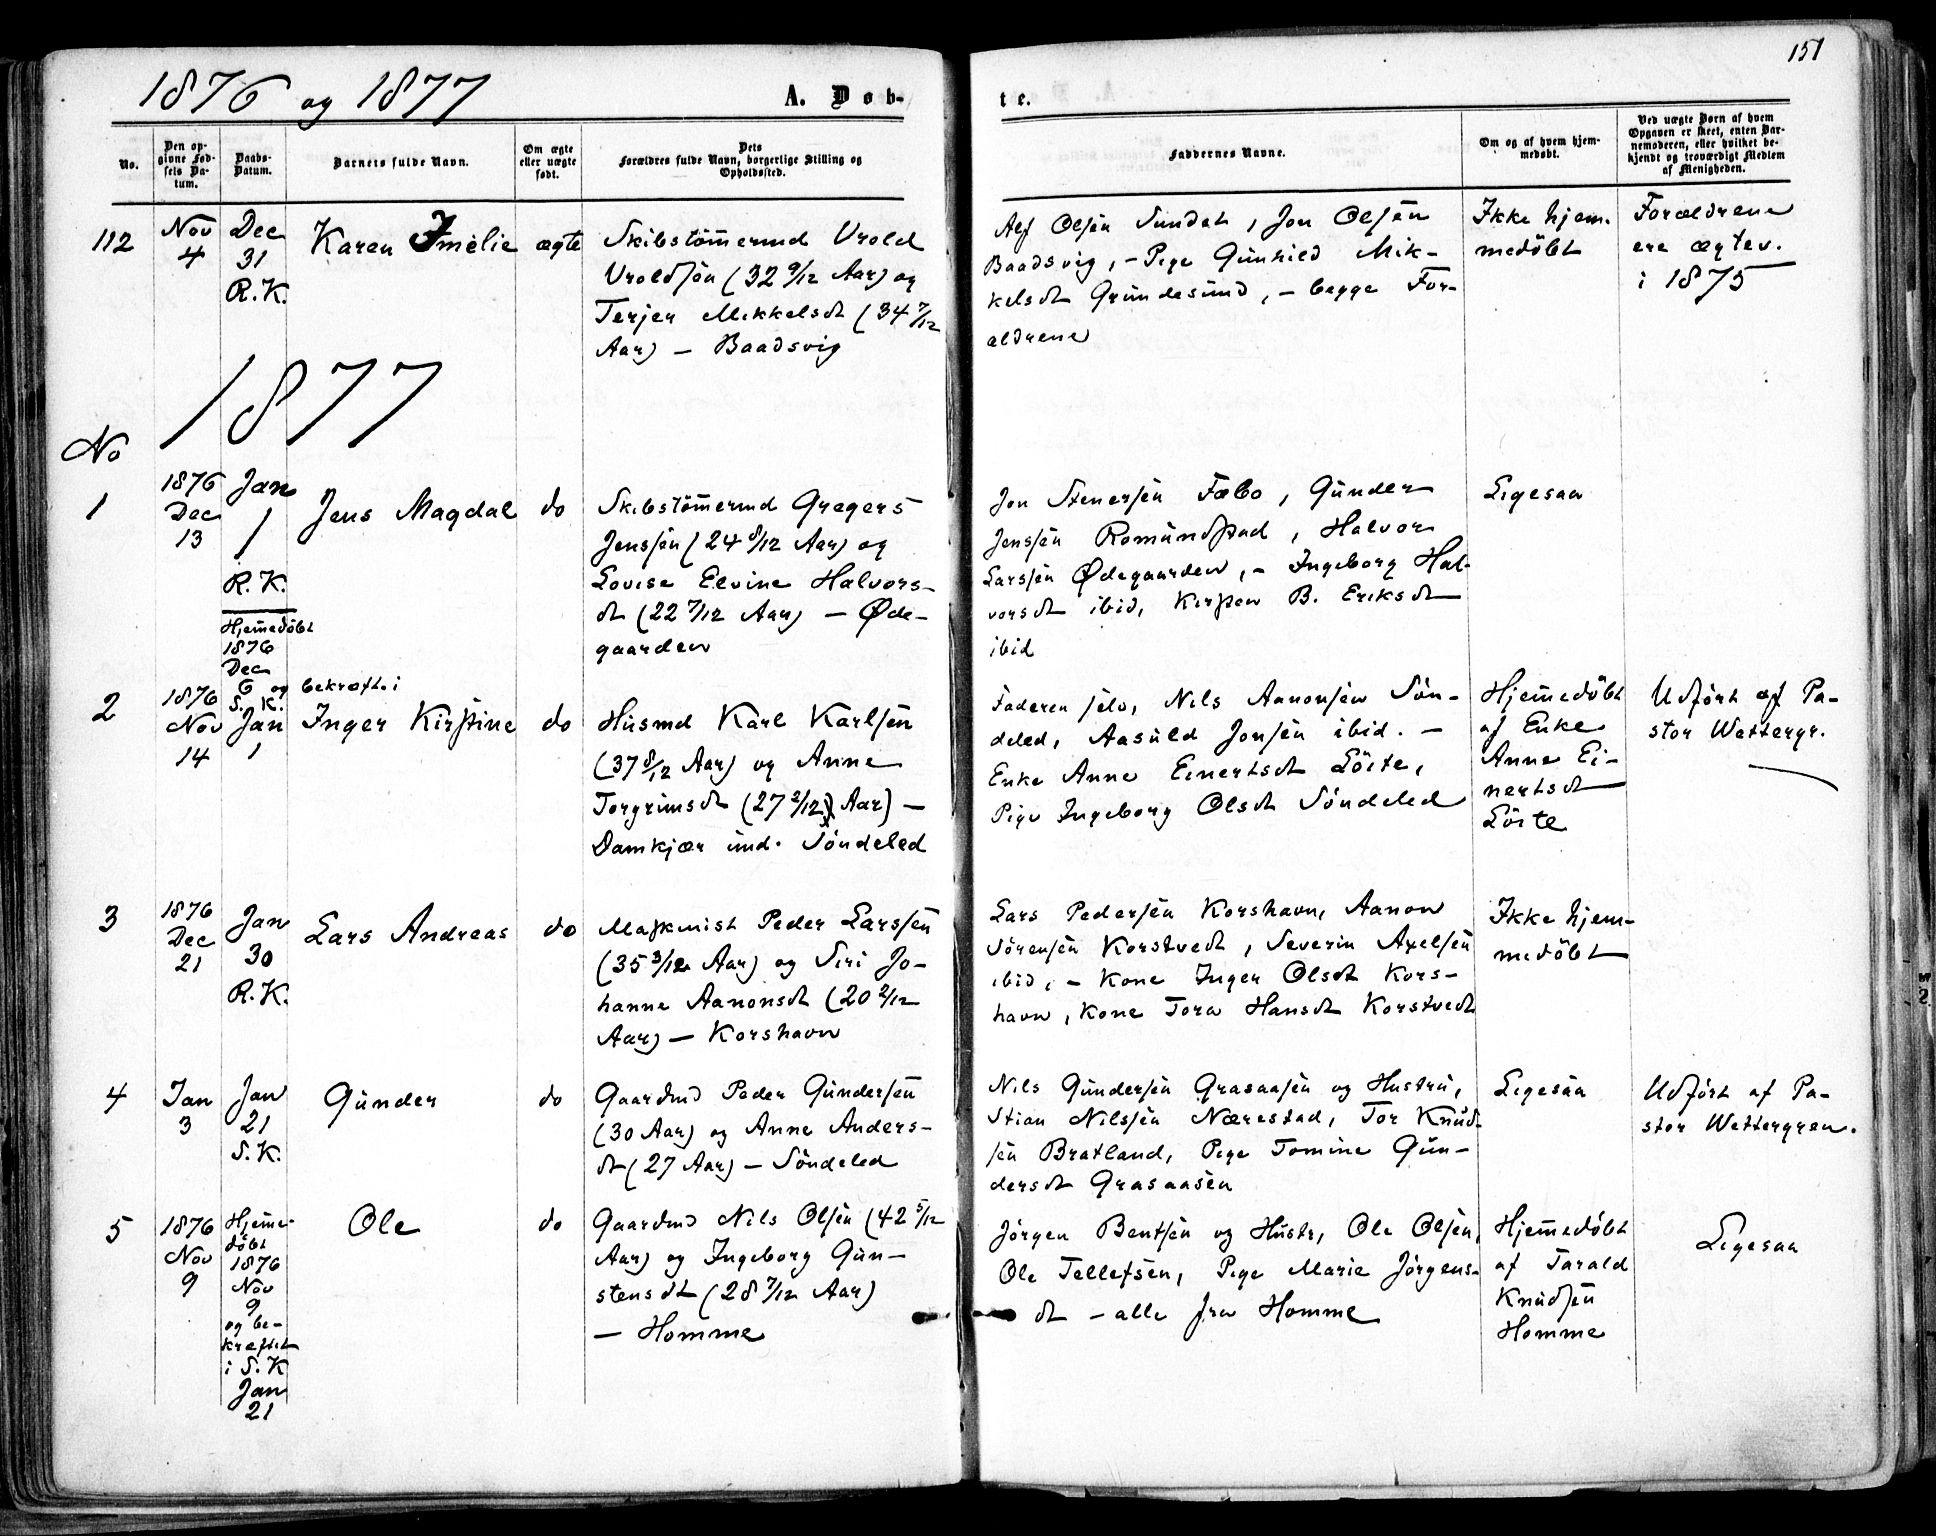 151
1876 og 1877
A. Døb-
te.
No.
Den op-
givne Fød-
sels Da-
tum.
Daabs-
Datum.
Barnets fulde Navn.
Om ægte
eller uægte
født.
Dets
Forældres fulde Navn, borgerlige Stilling og
Opholdssted.
Faddernes Navne.
Om og af hvem hjem-
medøbt.
Ved uægte Børn af hvem
Opgaven er skeet, enten Bar-
nemoderen, eller hvilket be-
kjendt og troværdigt Medlem
af Menigheden.
112
Nov
4
Dec
31
R.K.
Karen Imelie
ægte
Skibstömermd Vrold
Vroldsøn (32 9/12 Aar) og
Terjer Mikkelsdt (34 7/12
Aar) — Baadsvig
Alf Olsen Sundet, Jon Olsen
Baadsvig, — Pige Gunhild Mik-
kelsdt Grundesund, — begge For-
ældrene
Ikke hjem-
medöbt
Forældrene
ere ægtev.
i 1875
1877
No
1
1876
Dec
13
Jan
1
R.K.
Jens Magdal
do
Skibstömermd Gregers
Jenssen (24 8/12 Aar) og
Lovise Elvine Halvors-
dt (22 7/12 Aar) — Øde-
gaarden
Jon Stenersen Fæbo, Gunder
Jenssen Romundstad, Halvor
Larssen Ødegaarden, — Ingeborg Hal-
vorsdt ibid, Kirsten B. Eriksdt
ibid
Ligesaa
2
1876
Nov
14
Hjemedöbt
1876
Dec
6 og bekræft. i
S.K.
Jan
1
Inger Kirstine
do
Husmd Karl Karlsen
(37 8/12 Aar) og Anne
Torgrimsdt (27 2/12 Aar) —
Damkjær und. Söndeled
Faderen selv, Nils Aanonsen Sön-
deled, Aasuld Jonsen ibid. —
Enke Anne Einertsdt Löite,
Pige Ingeborg Olsdt Söndeled
Hjemedöbt
af Enke
Anne Ei-
nertsdt
Löite
Udfört af Pa-
stor Wettergr.
3
1876
Dec
21
Jan
30
R.K.
Lars Andreas
do
Maskinist Peder Larssen
(35 3/12 Aar) og Siri Jo-
hanne Aanonsdt (20 2/12
Aar) — Korshavn
Lars Pedersen Korshavn, Aanon
Sörensen Korstvedt, Severin Axelsen
ibid, — Kone Inger Olsdt Kors-
havn, Kone Tora Hansdt Korstvedt
Ikke hjem-
medöbt
4
Jan
3
Jan
21
S.K.
Gunder
do
Gaardmd Peder Gundersen
(30 Aar) og Anne Anders-
dt (27 Aar) — Söndeled
Nils Gundersen Grasaasen og Hustru,
Stian Nilssen Nærestad, Tor Knud-
sen Bratland, Pige Tomine Gun-
dersdt Grasaasen
Ligesaa
Udfört af Pa-
stor Wettergren.
5
1876
Nov
9
Hjeme-
döbt
1876
Nov
9
og be-
kræftet
i S.K
Jan
21
Ole
do
Gaardmd Nils Olsen (42 5/12
Aar) og Ingeborg Gun-
stensdt (28 7/12 Aar)
— Homme
Jörgen Bentsen og Hustr, Ole Olsen,
Ole Tellefsen, Pige Marie Jörgens-
dt — alle fra Homme
Hjemedöbt
af Tarald
Knudsen
Homme
Ligesaa